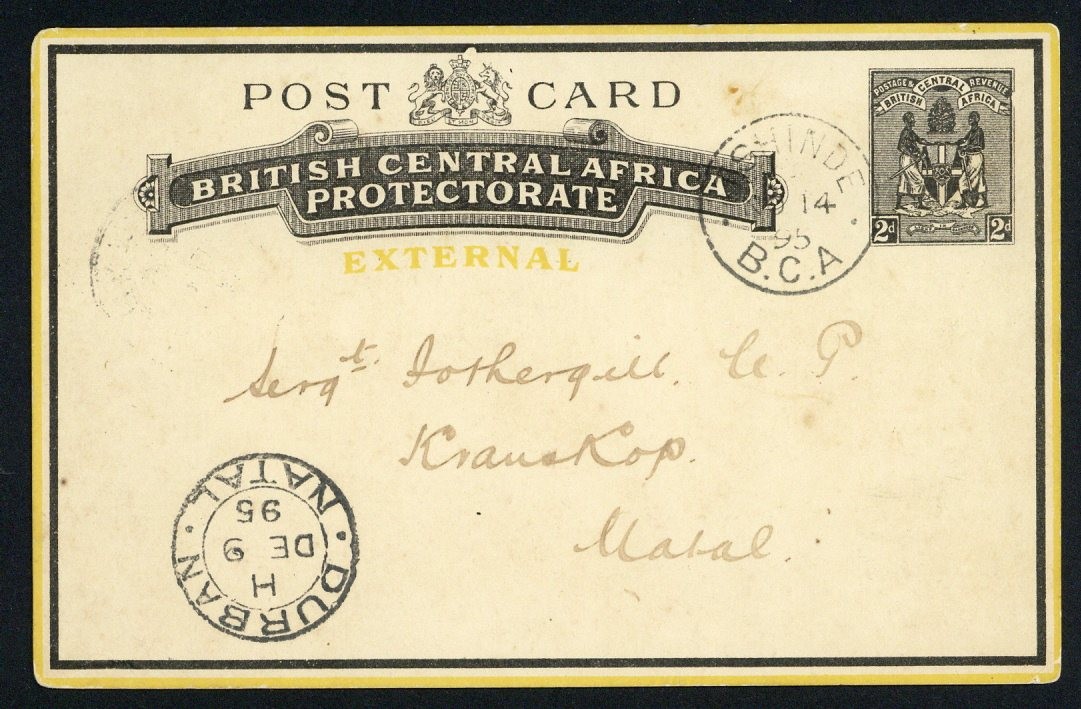 POST CARD
BRITISH CENTRAL AFRICA
PROTECTORATE
EXTERNAL
POSTAGE & REVENUE
BRITISH CENTRAL AFRICA
2d 2d
CHINDE
14
95
B.C.A
Sergt. Fothergill. N. P.
KransKop.
Natal.
DURBAN · NATAL
H
DE 9
95